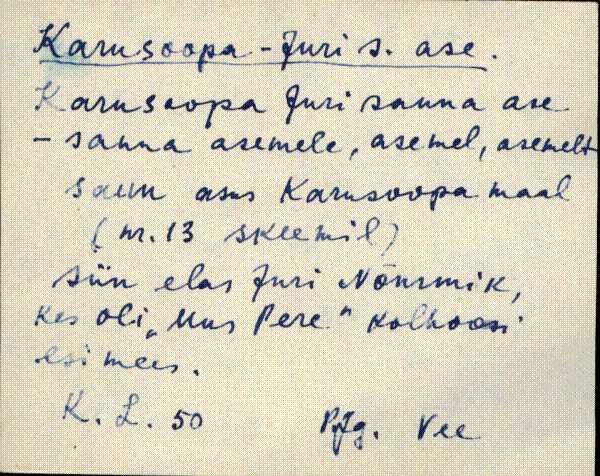 Karusoopa - Juri s. ase.
Karusoopa Juri sauna ase
- sauna asemele, asemel, asemelt
saun asus Karusoopa maal
(nr. 13 skeemil)
siin elas Juri Nõnrmik,
kes oli "Uus Pere" kolhoosi
esimees.
K. L. 50 Vee